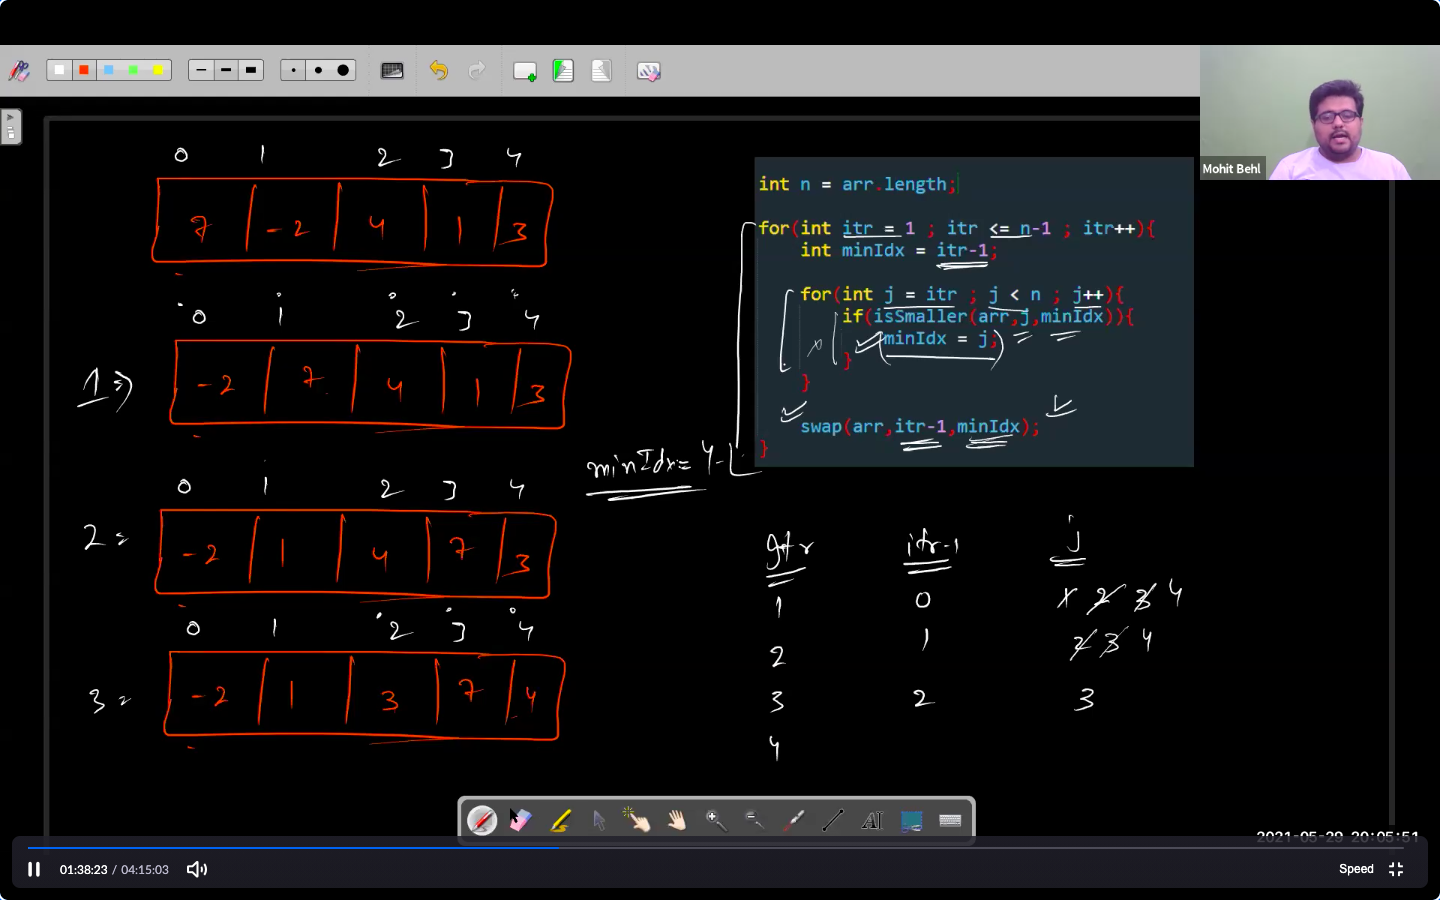 Mohit Behl
0 1 2 3 4
7 -2 4 1 3
0 1 2 3 4
1 => -2 7 4 1 3
0 1 2 3 4
2 = -2 1 4 7 3
0 1 2 3 4
3 = -2 1 3 7 4
int n = arr.length;
for(int itr = 1 ; itr <= n-1 ; itr++){
int minIdx = itr-1;
for(int j = itr ; j < n ; j++){
if(isSmaller(arr,j,minIdx)){
minIdx = j;
}
}
swap(arr,itr-1,minIdx);
}
minIdx = 4
itr itr-1 j
1 0 1 2 3 4
2 1 2 3 4
3 2 3
4
AI
2021-05-29 20:05:51
01:38:23 / 04:15:03
Speed